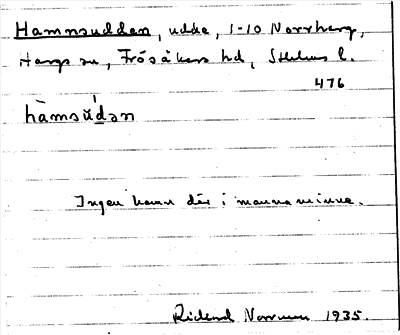 Hamnsudden, udde, 1-10 Norrberg,
Hargs sn, Frösåkers hd, Sthlms l.
476
hàmsŭ́dən
Ingen hamn där i mannaminne.
Rickard Norrman 1935.